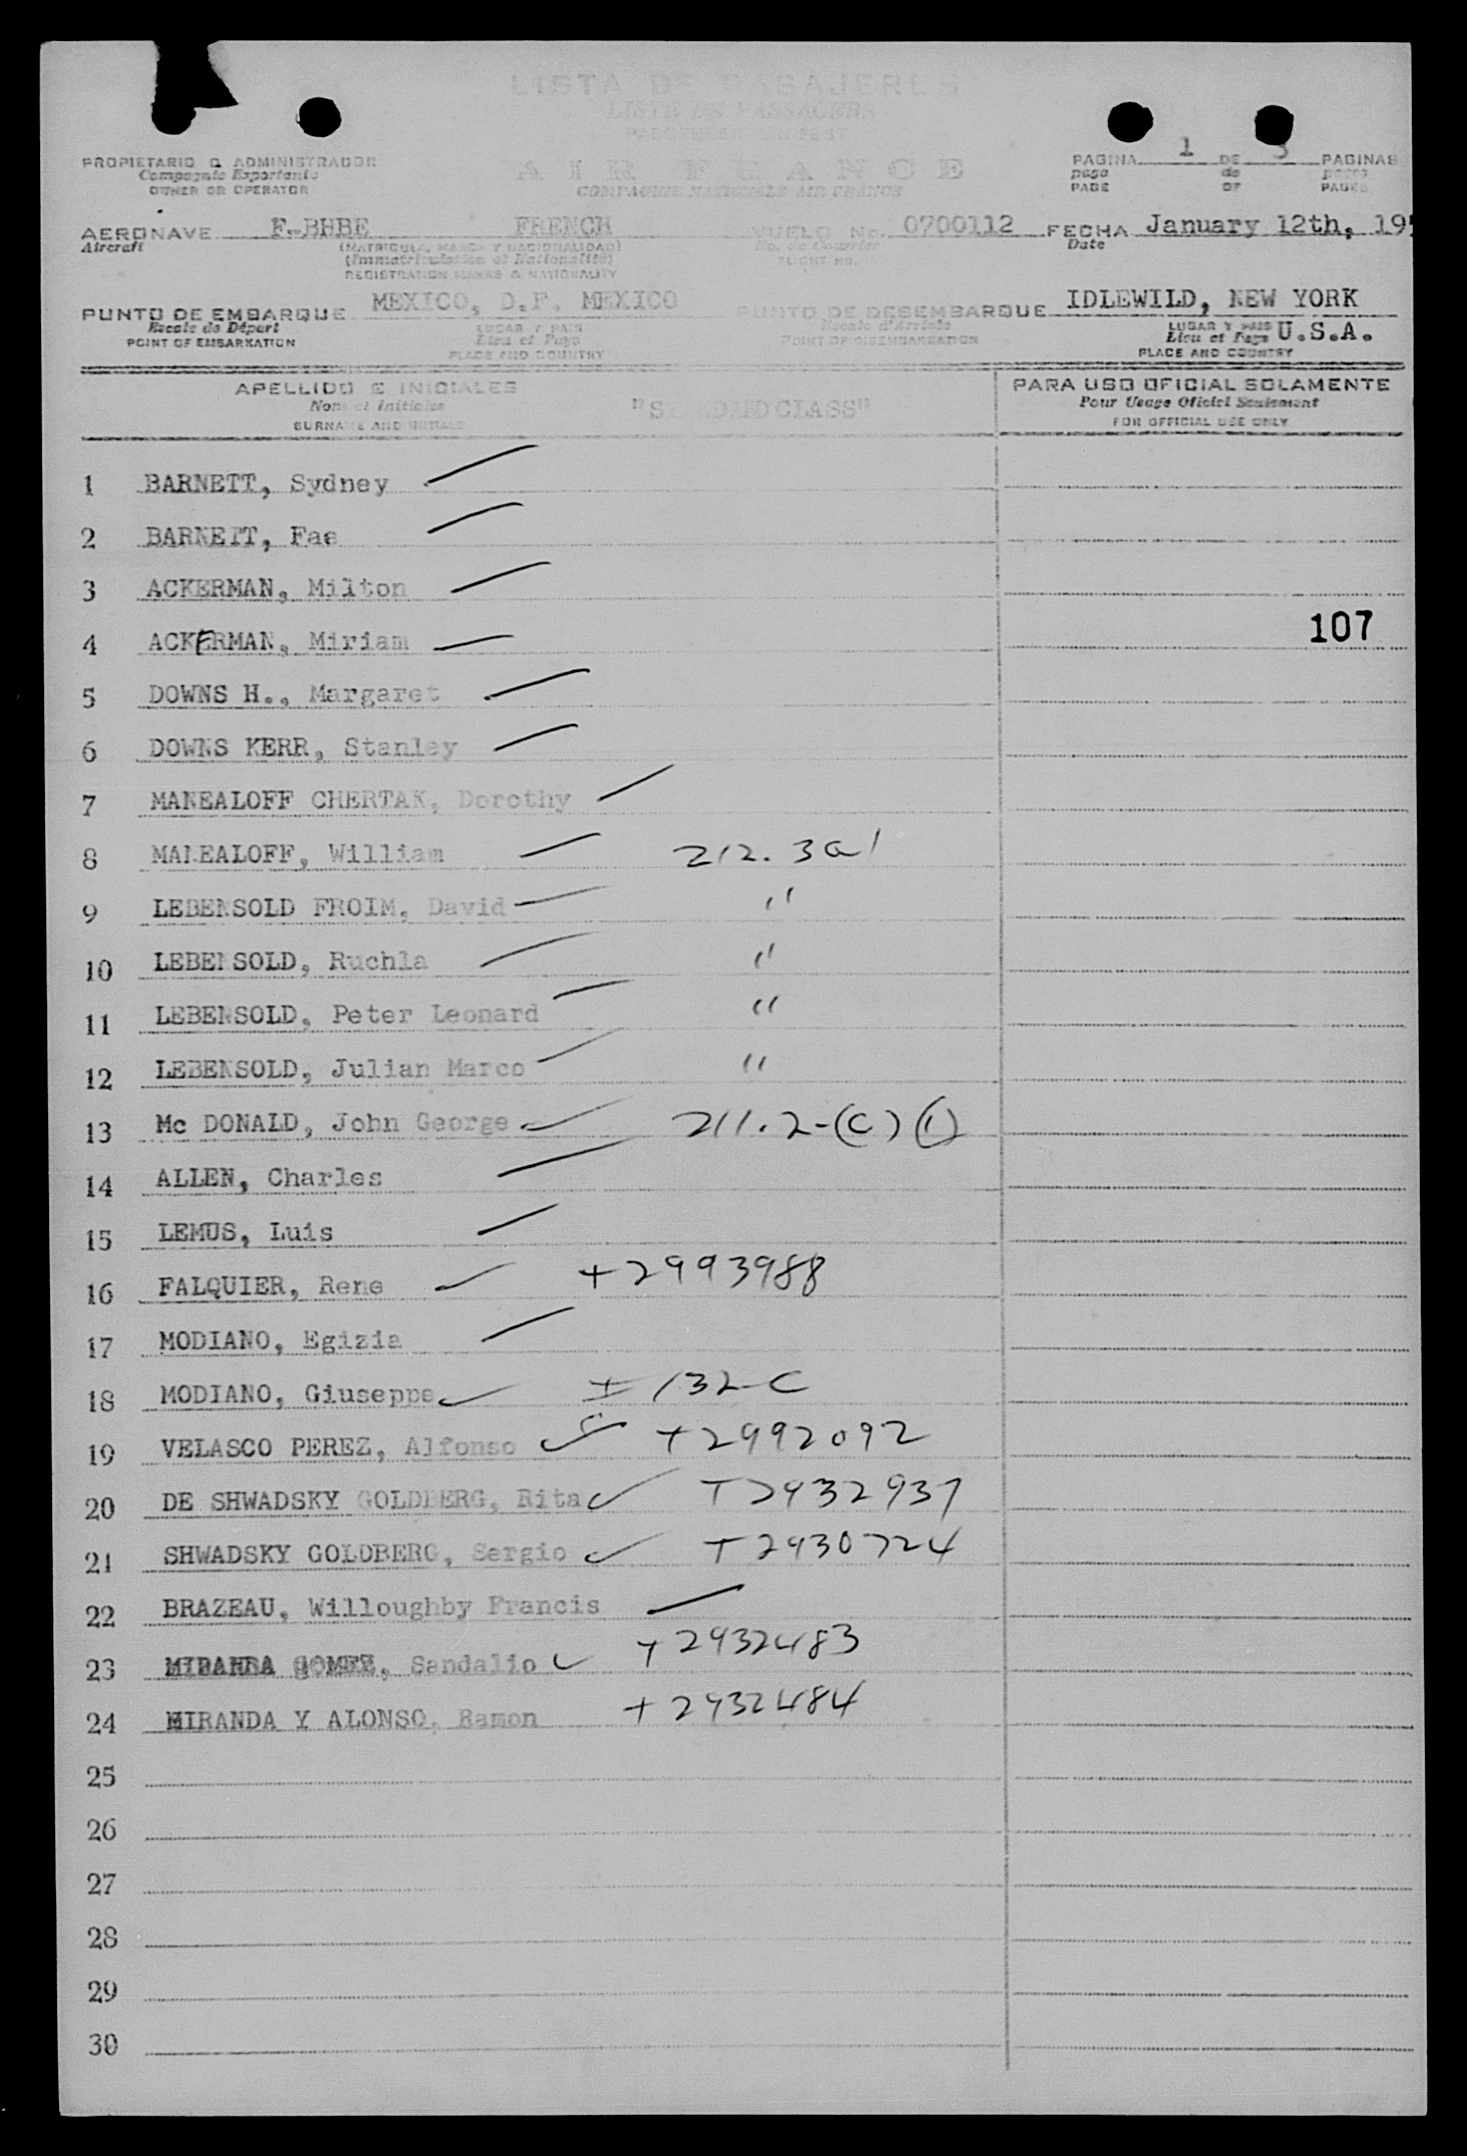 LISTA DE PASAJEROS
LISTE DES PASSAGERS
PASSENGER MANIFEST
PROPIETARIO O ADMINISTRADOR
Compagnie Exportante
OWNER OR OPERATOR
AIR FRANCE
COMPAGNIE NATIONALE AIR FRANCE
PAGINA 1 DE 3 PAGINAS
page de pages
PAGE OF PAGES
AERONAVE F-BHBE FRENCH VUELO No. 0700112 FECHA January 12th, 195
Aircraft (MATRICULA, MARCA Y NACIONALIDAD) No. de Courrier Date
(Immatriculation et Nationalité) FLIGHT NO.
REGISTRATION MARKS & NATIONALITY
PUNTO DE EMBARQUE MEXICO, D.F. MEXICO PUNTO DE DESEMBARQUE IDLEWILD, NEW YORK
Escale de Départ LUGAR Y PAIS Escale d'Arrivée LUGAR Y PAIS U.S.A.
POINT OF EMBARKATION Lieu et Pays POINT OF DISEMBARKATION Lieu et Pays
PLACE AND COUNTRY PLACE AND COUNTRY
APELLIDO E INICIALES PARA USO OFICIAL SOLAMENTE
Nom et Initiales "STANDARD CLASS" Pour Usage Oficiel Seulement
SURNAME AND INITIALS FOR OFFICIAL USE ONLY
1 BARNETT, Sydney
2 BARNETT, Fae
3 ACKERMAN, Milton
4 ACKERMAN, Miriam 107
5 DOWNS H., Margaret
6 DOWNS KERR, Stanley
7 MANEALOFF CHERTAK, Dorothy
8 MANEALOFF, William 212.3a1
9 LEBENSOLD FROIM, David "
10 LEBENSOLD, Ruchla "
11 LEBENSOLD, Peter Leonard "
12 LEBENSOLD, Julian Marco "
13 Mc DONALD, John George 211.2-(c)(1)
14 ALLEN, Charles
15 LEMUS, Luis
16 FALQUIER, Rene +2993988
17 MODIANO, Egizia
18 MODIANO, Giuseppe I 132-C
19 VELASCO PEREZ, Alfonso +2992092
20 DE SHWADSKY GOLDBERG, Rita T2932937
21 SHWADSKY GOLDBERG, Sergio T2930724
22 BRAZEAU, Willoughby Francis
23 GOMEZ, Sandalio +2932483
24 MIRANDA Y ALONSO, Ramon +2932484
25
26
27
28
29
30